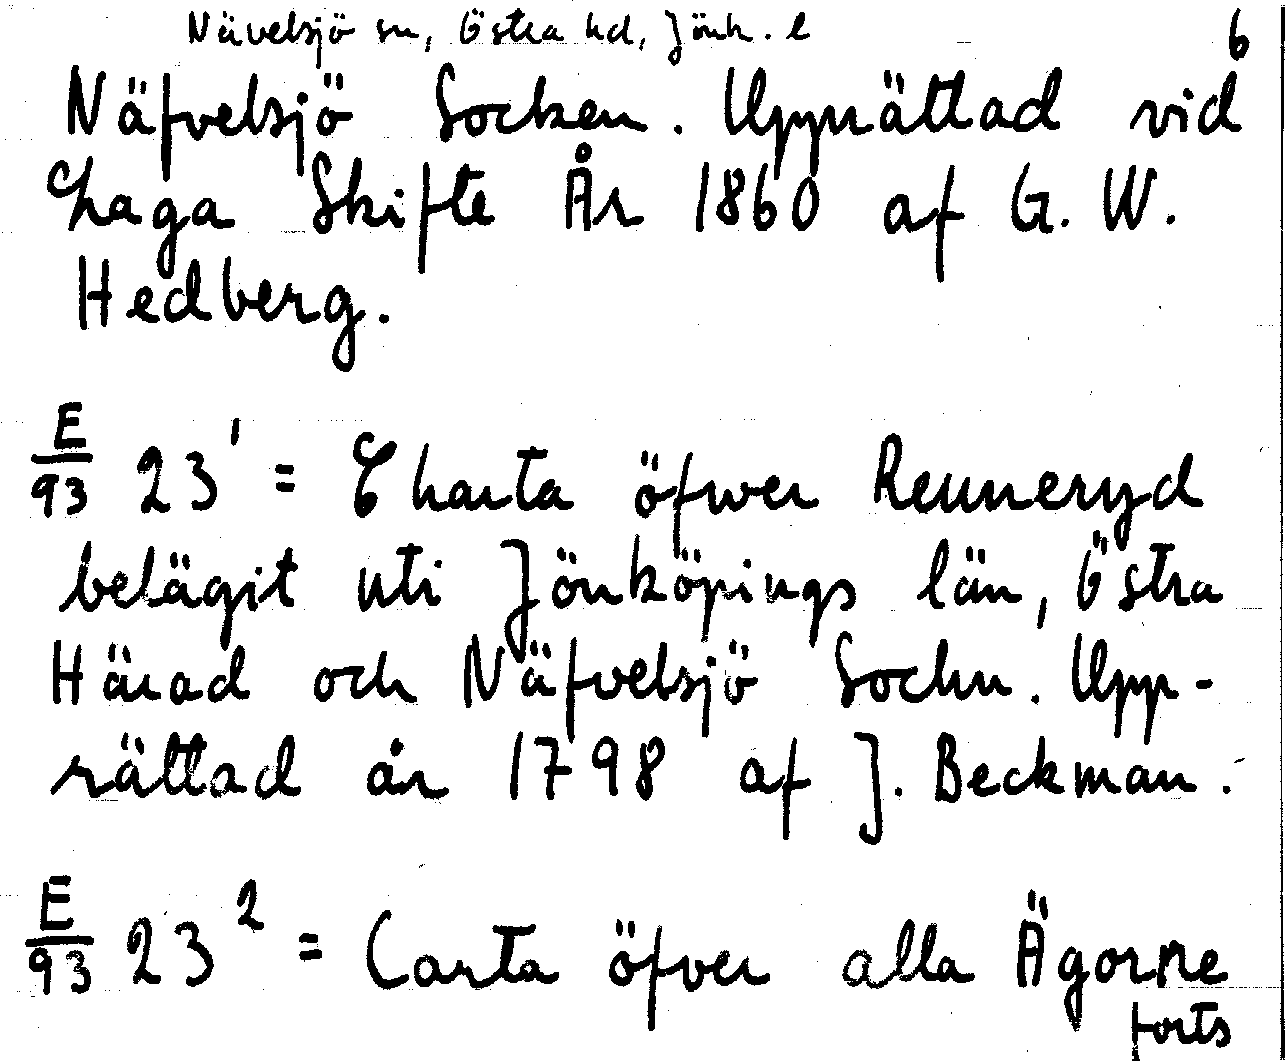 Nävelsjö sn, Östra hd, Jönk. l 6
Näfvelsjö Socken. Upprättad vid
Laga Skifte År 1860 af G. W.
Hedberg.
E/93 23¹ = Charta öfwer Renneryd
belägit uti Jönköpings län, Östra
Härad och Näfvelsjö Sockn. Upp-
rättad år 1798 af J. Beckman.
E/93 23² = Carta öfver alla Ägorne
forts